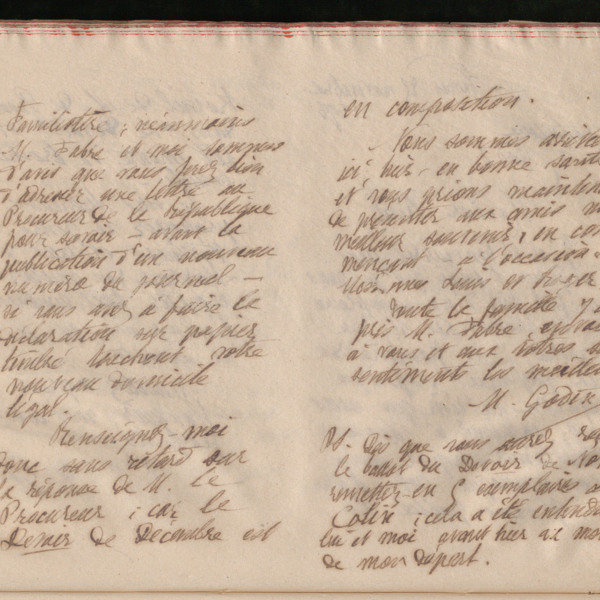 Familistère ; néanmoins
M. Fabre et moi sommes
d'avis que vous ferez bien
d'adresser une lettre au
Procureur de la république
pour savoir - avant la
publication d'un nouveau
numéro du journal -
si vous avez à faire la
déclaration sur papier
timbré touchant votre
nouveau domicile
légal.
Renseignez-moi
donc sans retard sur
la réponse de M. le
Procureur ; car le
Devoir de Décembre est
en composition.
Nous sommes
ici hier en bonne santé
et vous prions
de présenter aux amis
meilleur souvenir, en
à l'occasion
Toute la famille
pris M. Fabre,
à vous et aux vôtres
sentiments les meilleurs
M. Godin
PS. Dès que vous aurez
le Devoir de
remettez en 5 exemplaires
Colin ; cela a été entendu
lui et moi avant hier
de mon départ.